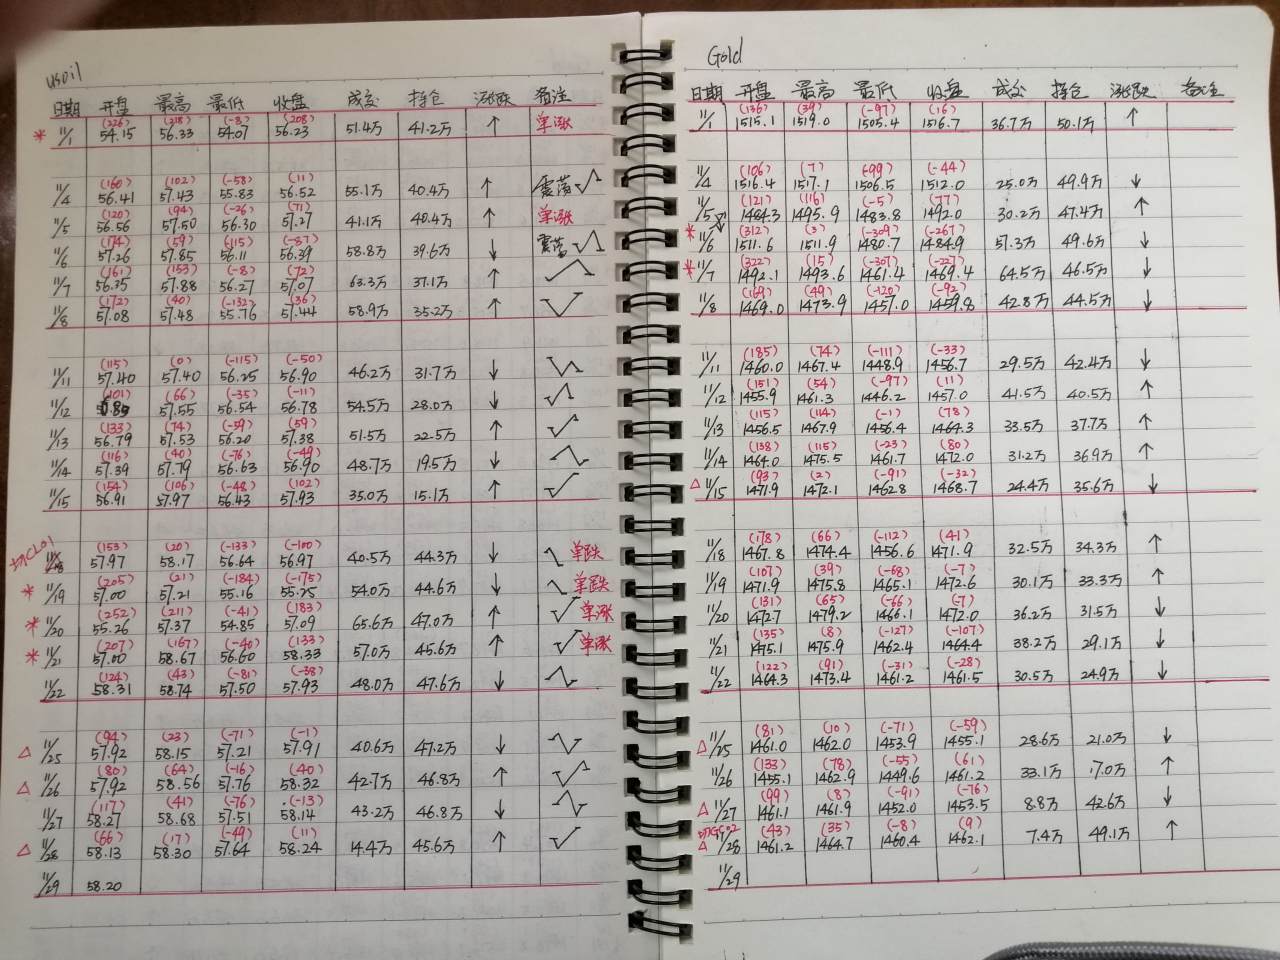 usoil
日期 开盘 最高 最低 收盘 成交 持仓 涨跌 备注
(226) (218) (-8) (208)
* 11/1 54.15 56.33 54.07 56.23 51.4万 41.2万 ↑ 单涨
(160) (102) (-58) (11)
11/4 56.41 57.43 55.83 56.52 55.1万 40.4万 ↑ 震荡
(120) (94) (-26) (71)
11/5 56.56 57.50 56.30 57.27 41.1万 40.4万 ↑ 单涨
(174) (59) (115) (-87)
11/6 57.26 57.85 56.11 56.39 58.8万 39.6万 ↓ 震荡
(161) (153) (-8) (72)
11/7 56.35 57.88 56.27 57.07 63.3万 37.1万 ↑
(172) (40) (-132) (36)
11/8 57.08 57.48 55.76 57.44 58.9万 35.2万 ↑
(115) (0) (-115) (-50)
11/11 57.40 57.40 56.25 56.90 46.2万 31.7万 ↓
(101) (66) (-35) (-11)
11/12 57.55 56.54 56.78 54.5万 28.0万 ↓
(133) (74) (-59) (59)
11/13 56.79 57.53 56.20 57.38 51.5万 22.5万 ↑
(116) (40) (-76) (-49)
11/14 57.39 57.79 56.63 56.90 48.7万 19.5万 ↓
(154) (106) (-48) (102)
11/15 56.91 57.97 56.43 57.93 35.0万 15.1万 ↑
切CL01 (153) (20) (-133) (-100)
57.97 58.17 56.64 56.97 40.5万 44.3万 ↓ 单跌
(205) (21) (-184) (-175)
* 11/19 57.00 57.21 55.16 55.25 54.0万 44.6万 ↓ 单跌
(252) (211) (-41) (183)
* 11/20 55.26 57.37 54.85 57.09 65.6万 47.0万 ↑ 单涨
(207) (167) (-40) (133)
* 11/21 57.00 58.67 56.60 58.33 57.0万 45.6万 ↑ 单涨
(124) (43) (-81) (-38)
11/22 58.31 58.74 57.50 57.93 48.0万 47.6万 ↓
(94) (23) (-71) (-1)
△ 11/25 57.92 58.15 57.21 57.91 40.6万 47.2万 ↓
(80) (64) (-16) (40)
△ 11/26 57.92 58.56 57.76 58.32 42.7万 46.8万 ↑
(117) (41) (-76) (-13)
11/27 58.27 58.68 57.51 58.14 43.2万 46.8万 ↓
(66) (17) (-49) (11)
△ 11/28 58.13 58.30 57.64 58.24 14.4万 45.6万 ↑
11/29 58.20
Gold
日期 开盘 最高 最低 收盘 成交 持仓 涨跌 备注
(136) (39) (-97) (16)
11/1 1515.1 1519.0 1505.4 1516.7 36.7万 50.1万 ↑
(106) (7) (-99) (-44)
11/4 1516.4 1517.1 1506.5 1512.0 25.0万 49.9万 ↓
(121) (116) (-5) (77)
11/5 1484.3 1495.9 1483.8 1492.0 30.2万 47.4万 ↑
(312) (3) (-309) (-267)
* 11/6 1511.6 1511.9 1480.7 1484.9 57.3万 49.6万 ↓
(322) (15) (-307) (-227)
* 11/7 1492.1 1493.6 1461.4 1469.4 64.5万 46.5万 ↓
(169) (49) (-120) (-92)
11/8 1469.0 1473.9 1457.0 1459.8 42.8万 44.5万 ↓
(185) (74) (-111) (-33)
11/11 1460.0 1467.4 1448.9 1456.7 29.5万 42.4万 ↓
(151) (54) (-97) (11)
11/12 1455.9 1461.3 1446.2 1457.0 41.5万 40.5万 ↑
(115) (114) (-1) (78)
11/13 1456.5 1467.9 1456.4 1464.3 33.5万 37.7万 ↑
(138) (115) (-23) (80)
11/14 1464.0 1475.5 1461.7 1472.0 31.2万 36.9万 ↑
(93) (2) (-91) (-32)
△ 11/15 1471.9 1472.1 1462.8 1468.7 24.4万 35.6万 ↓
(178) (66) (-112) (41)
11/18 1467.8 1474.4 1456.6 1471.9 32.5万 34.3万 ↑
(107) (39) (-68) (-7)
11/19 1471.9 1475.8 1465.1 1472.6 30.1万 33.3万 ↑
(131) (65) (-66) (-7)
11/20 1472.7 1479.2 1466.1 1472.0 36.2万 31.5万 ↓
(135) (8) (-127) (-107)
11/21 1475.1 1475.9 1462.4 1464.4 38.2万 29.1万 ↓
(122) (91) (-31) (-28)
11/22 1464.3 1473.4 1461.2 1461.5 30.5万 24.9万 ↓
(81) (10) (-71) (-59)
△ 11/25 1461.0 1462.0 1453.9 1455.1 28.6万 21.0万 ↓
(133) (78) (-55) (61)
11/26 1455.1 1462.9 1449.6 1461.2 33.1万 17.0万 ↑
(99) (8) (-91) (-76)
△ 11/27 1461.1 1461.9 1452.0 1453.5 8.8万 42.6万 ↓
切GC02 (43) (35) (-8) (9)
△ 11/28 1461.2 1464.7 1460.4 1462.1 7.4万 49.1万 ↑
11/29